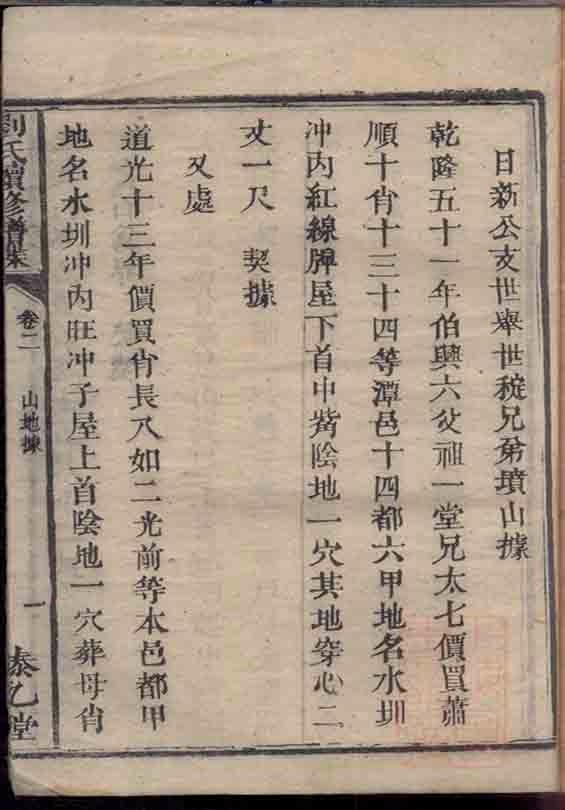 日新公支世舉世稅兄弟墳山據
乾隆五十一年伯興六父祖一堂兄太七價買蕭
順十肖十三十四等潭邑十四都六甲地名水圳
冲内紅線牌屋下首中嘴陰地一穴其地穿心二
丈一尺 契據
又處
道光十三年價買肖長八如二光前等本邑都甲
地名水圳冲内旺冲子屋上首陰地一穴葬母肖
劉氏續修譜牒
卷二
山地據
一
泰乙堂